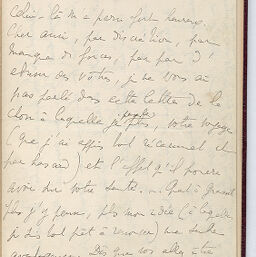 Celui-là m'a paru fort heureux.
Cher ami, par discrétion, par
manque de forces, par peur d'
des vôtres, je ne vous ai
pas parlé dans cette lettre de la
chose à laquelle je pense, votre voyage
(que j'ai appris tout récemment et
par hasard) et l'effet qu'il pourra
avoir sur votre santé. Quant à
plus j'y pense, plus mon idée (à laquelle
je suis tout prêt à renoncer) me semble
avantageuse. Dès que vous allez être